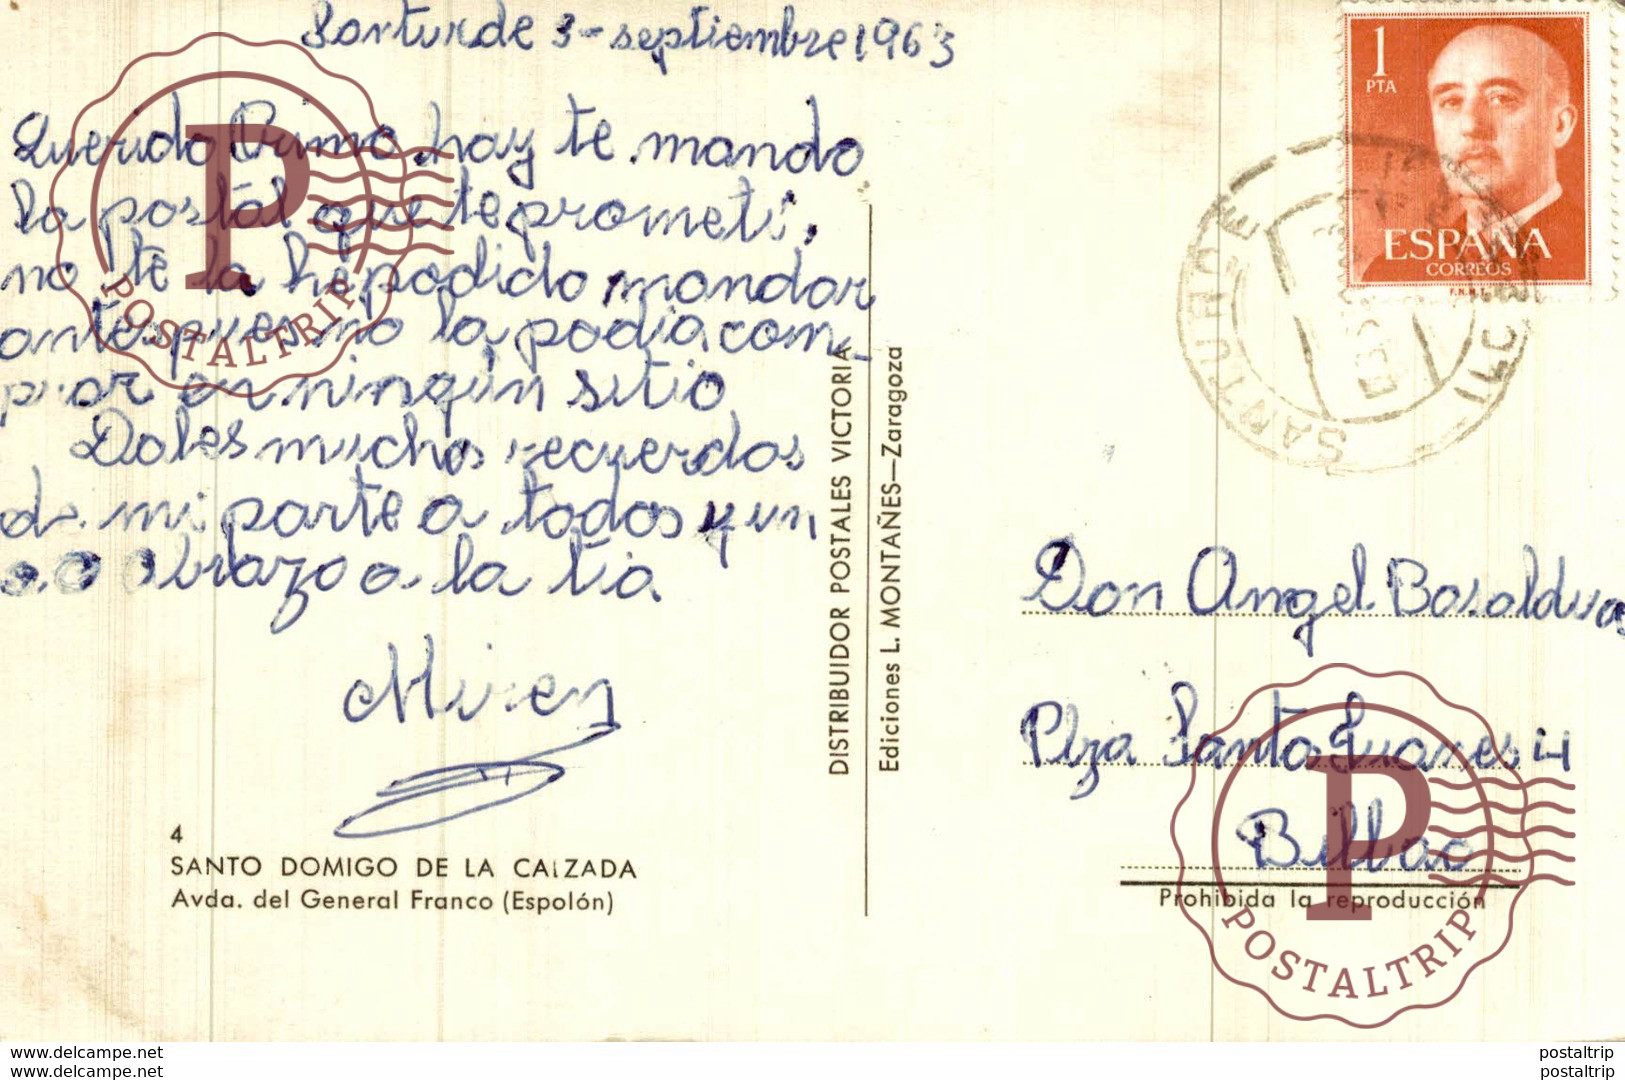 Santurde 3-septiembre 1963
Querido Primo hay te mando
la postál que te prometi,
no te la he podido mandar
antes pues no la podia com-
prar en ningún sitio
Dales muchos recuerdos
de mi parte a todos y un
abrazo a la tia.
Miren
4
SANTO DOMIGO DE LA CALZADA
Avda. del General Franco (Espolón)
DISTRIBUIDOR POSTALES VICTORIA
Ediciones L. MONTAÑES—Zaragoza
1
PTA
ESPAÑA
CORREOS
F.N.M.T.
SANTURDE
Don Angel Basalduas
Plza Santos Juanes 14
Bilbao
Prohibida la reproducción
P
POSTALTRIP
P
POSTALTRIP
www.delcampe.net
www.delcampe.net
postaltrip
postaltrip